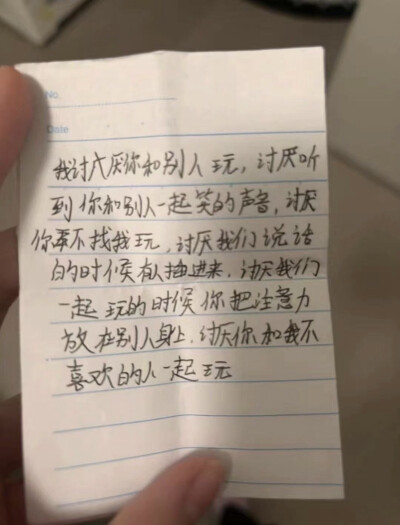 No.
Date
我讨厌你和别人玩，讨厌听
到你和别人一起笑的声音，讨厌
你不找我玩，讨厌我们说话
的时候有人插进来，讨厌我们
一起玩的时候你把注意力
放在别人身上，讨厌你和我不
喜欢的人一起玩